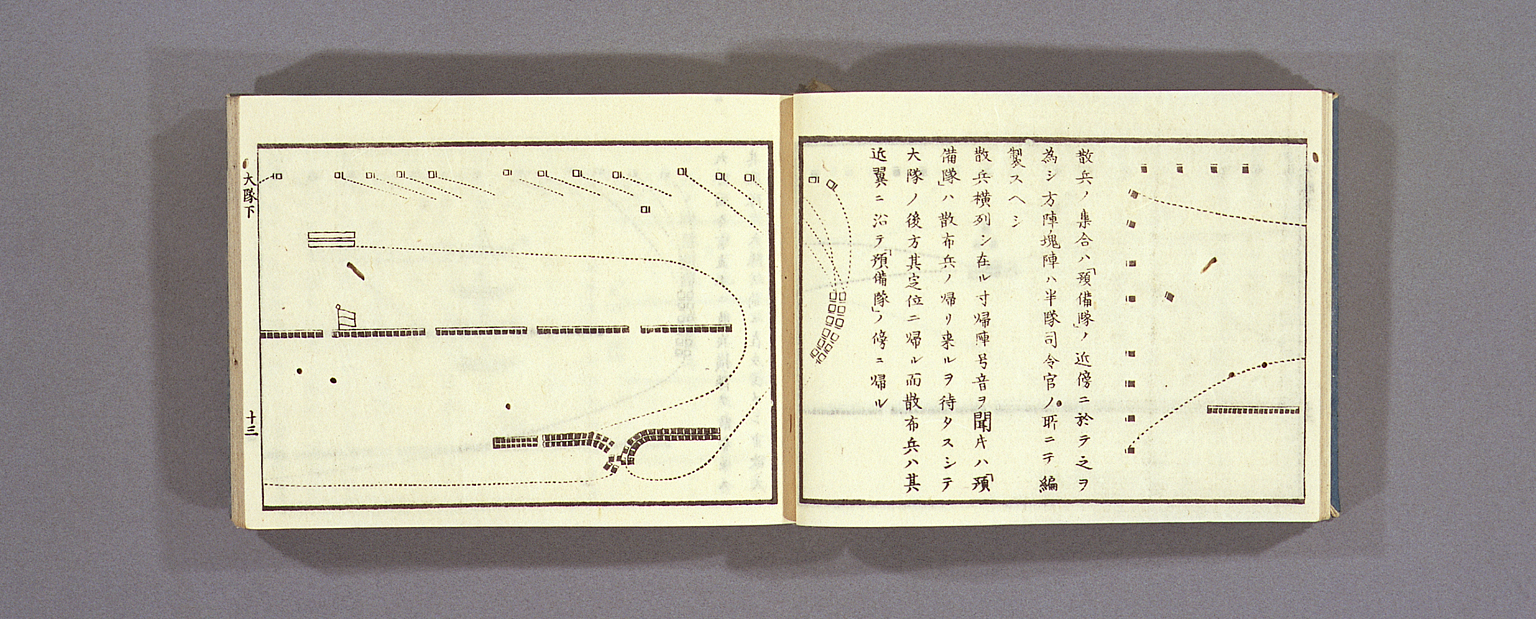 散兵ノ集合ハ「預備隊」ノ近傍ニ於テ之ヲ
為シ方陣塊陣ハ半隊司令官ノ所ニテ編
製スヘシ
散兵横列ン在ル寸帰陣号音ヲ聞片ハ「預
備隊」ハ散布兵ノ帰リ来ルヲ待タスシテ
大隊ノ後方其定位ニ帰ル而散布兵ハ其
近翼ニ沿テ「預備隊」ノ傍ニ帰ル
大隊下
十三